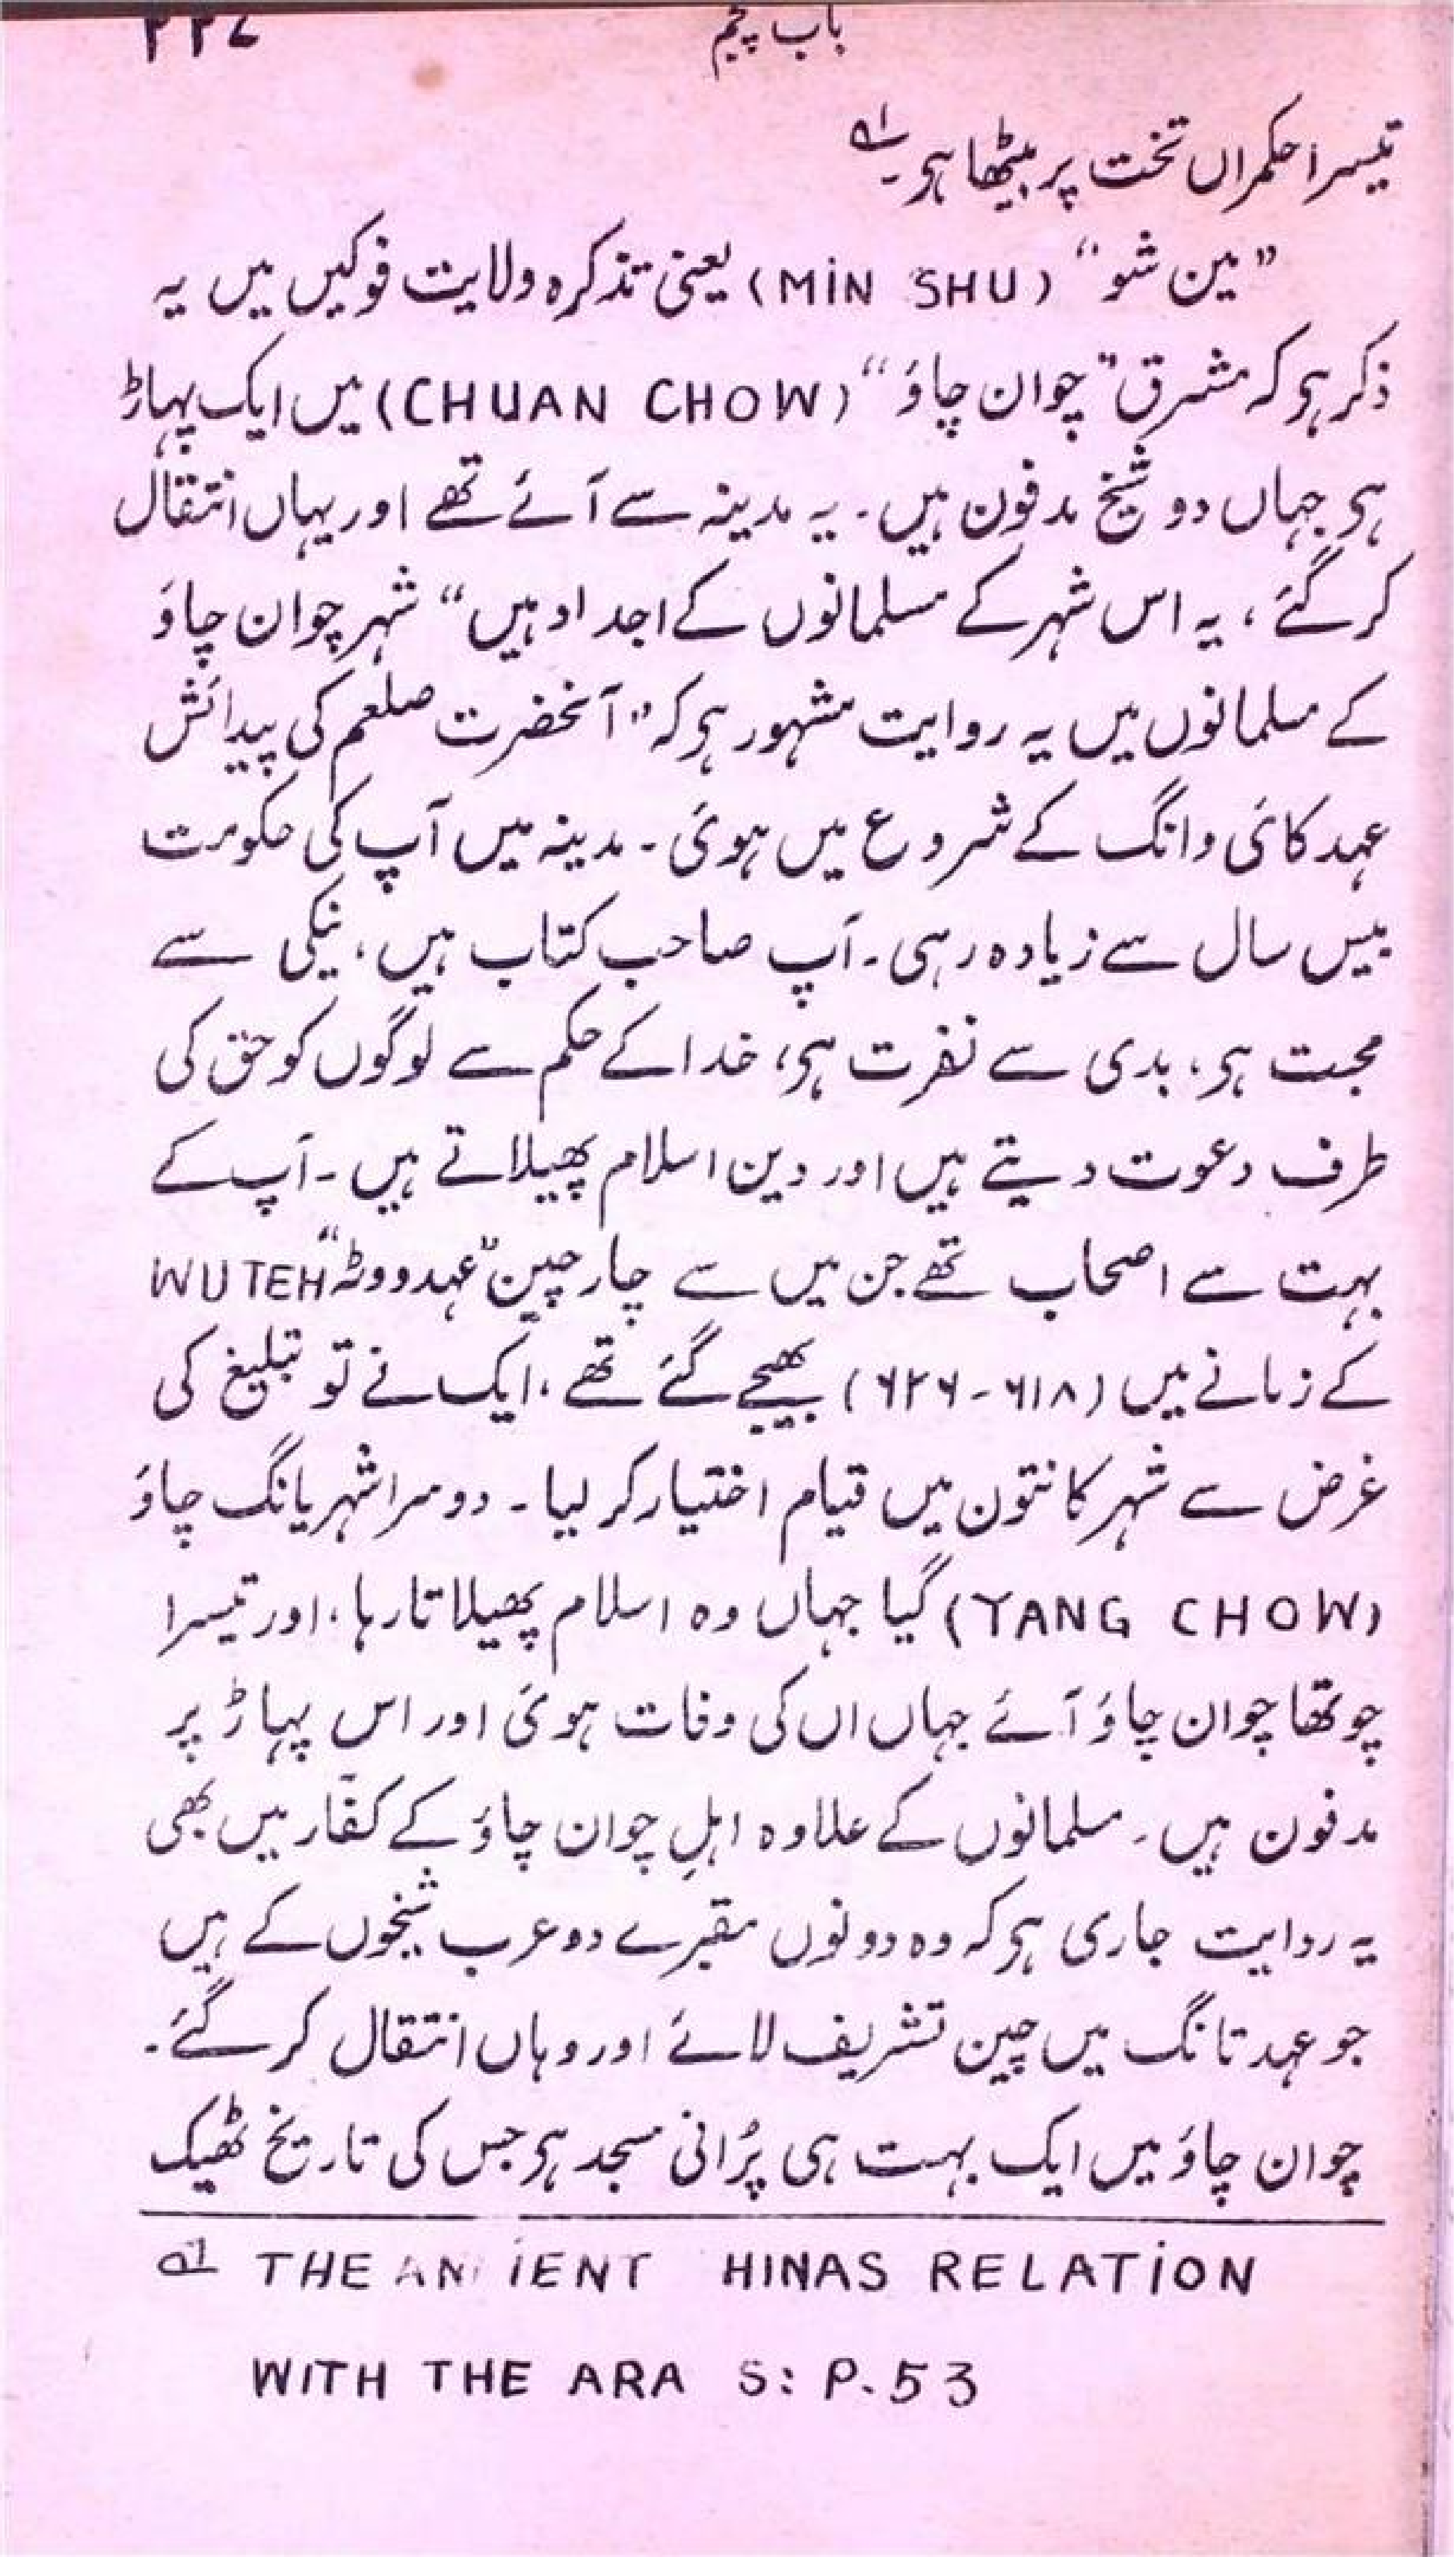 باب پنجم ۲۲۷
تیسرا حکمراں تخت پر بیٹھا ہی۔ لہ
”مین شو“ (MIN SHU) یعنی تذکرہ ولایت فوکین میں یہ
ذکر ہی کہ مشرق ”چوان چاؤ“ (CHUAN CHOW) میں ایک پہاڑ
ہی جہاں دو شیخ مدفون ہیں۔ یہ مدینہ سے آئے تھے اور یہاں انتقال
کر گئے، یہ اس شہر کے مسلمانوں کے اجداد ہیں“ شہر چوان چاؤ
کے مسلمانوں میں یہ روایت مشہور ہی کہ ”آنحضرت صلعم کی پیدائش
عہد کائی وانگ کے شروع میں ہوئی۔ مدینہ میں آپ کی حکومت
بیس سال سے زیادہ رہی۔ آپ صاحب کتاب ہیں، نیکی سے
محبت ہی، بدی سے نفرت ہی، خدا کے حکم سے لوگوں کو حق کی
طرف دعوت دیتے ہیں اور دین اسلام پھیلاتے ہیں۔ آپ کے
بہت سے اصحاب تھے جن میں سے چار چین ”عہد ووٹہ“ WUTEH
کے زمانے میں (۶۱۸-۶۲۶) بھیجے گئے تھے، ایک نے تو تبلیغ کی
غرض سے شہر کانتون میں قیام اختیار کر لیا۔ دوسرا شہر یانگ چاؤ
(YANG CHOW) گیا جہاں وہ اسلام پھیلاتا رہا، اور تیسرا
چوتھا چوان چاؤ آئے جہاں اں کی وفات ہوئی اور اس پہاڑ پر
مدفون ہیں۔ مسلمانوں کے علاوہ اہلِ چوان چاؤ کے کفّار میں بھی
یہ روایت جاری ہی کہ وہ دونوں مقبرے دو عرب شیخوں کے ہیں
جو عہد تانگ میں چین تشریف لائے اور وہاں انتقال کر گئے۔
چوان چاؤ میں ایک بہت ہی پُرانی مسجد ہی جس کی تاریخ ٹھیک
لہ THE AN IENT HINAS RELATION
WITH THE ARA S: P. 53